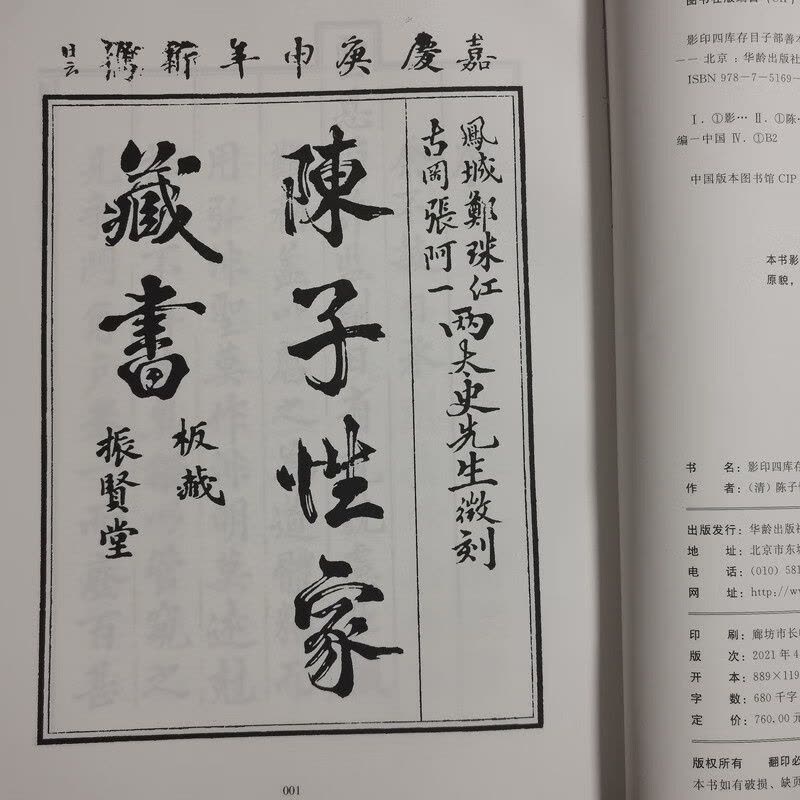 嘉慶庚申年新鐫
鳳城鄭珠江
古岡張阿一兩太史先生徵刻
陳子性家
藏書
板藏
振賢堂
001
影印四库存目子部善本
—— 北京：华龄出版社
ISBN 978-7-5169-
Ⅰ. ①影… Ⅱ. ①陈…
编—中国 Ⅳ. ①B2
中国版本图书馆 CIP
本书影
原貌，
书 名：影印四库存
作 者：（清）陈子性
出版发行：华龄出版社
地 址：北京市东城
电 话：（010）581
网 址：http://w
印 刷：廊坊市长
版 次：2021 年 4
开 本：889×119
字 数：680 千字
定 价：760.00 元
版权所有 翻印必
本书如有破损、缺页